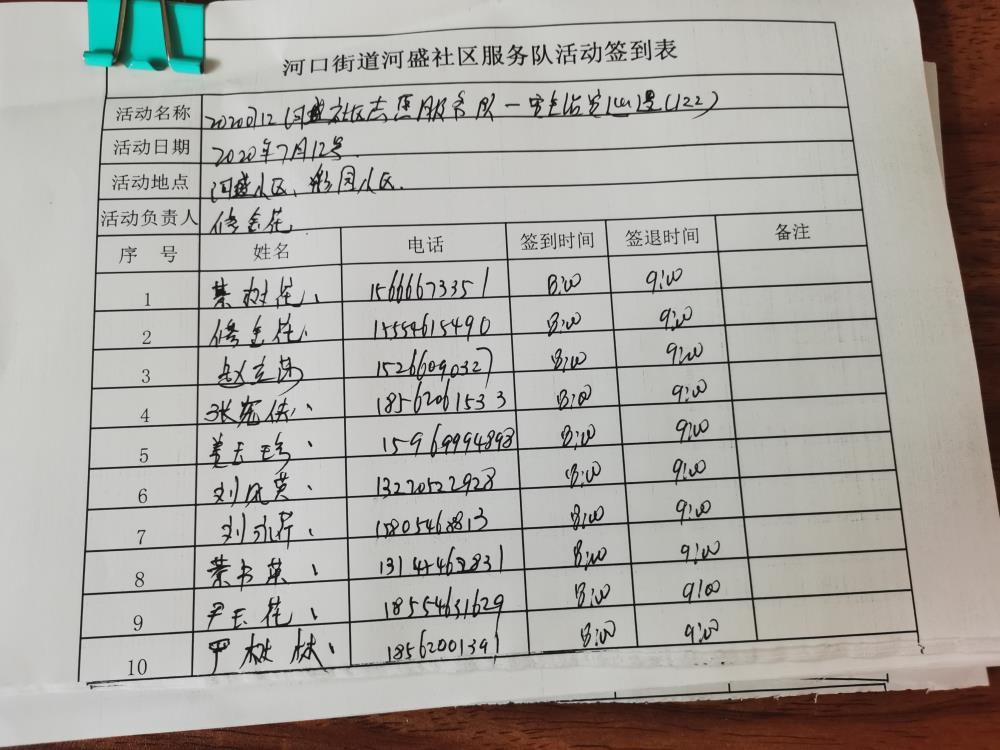 河口街道河盛社区服务队活动签到表
活动名称 20200712河盛社区志愿服务队一
活动日期 2020年7月12号.
活动地点 河盛小区、彤园小区.
活动负责人 修金花
序 号 姓名 电话 签到时间 签退时间 备注
1 花、 15666673351 8:00 9:00
2 修金花. 15554615490 8:00 9:00
3 赵立 15266090327 8:00 9:00
4 张宪 18562061533 8:00 9:00
5 姜玉珍、 15969994898 8:00 9:00
6 刘凤英、 13220522928 8:00 9:00
7 刘 15805468813 8:00 9:00
8 8:00 9:00
9 尹玉花、 18554631629 8:00 9:00
10 林、 18562001391 8:00 9:00